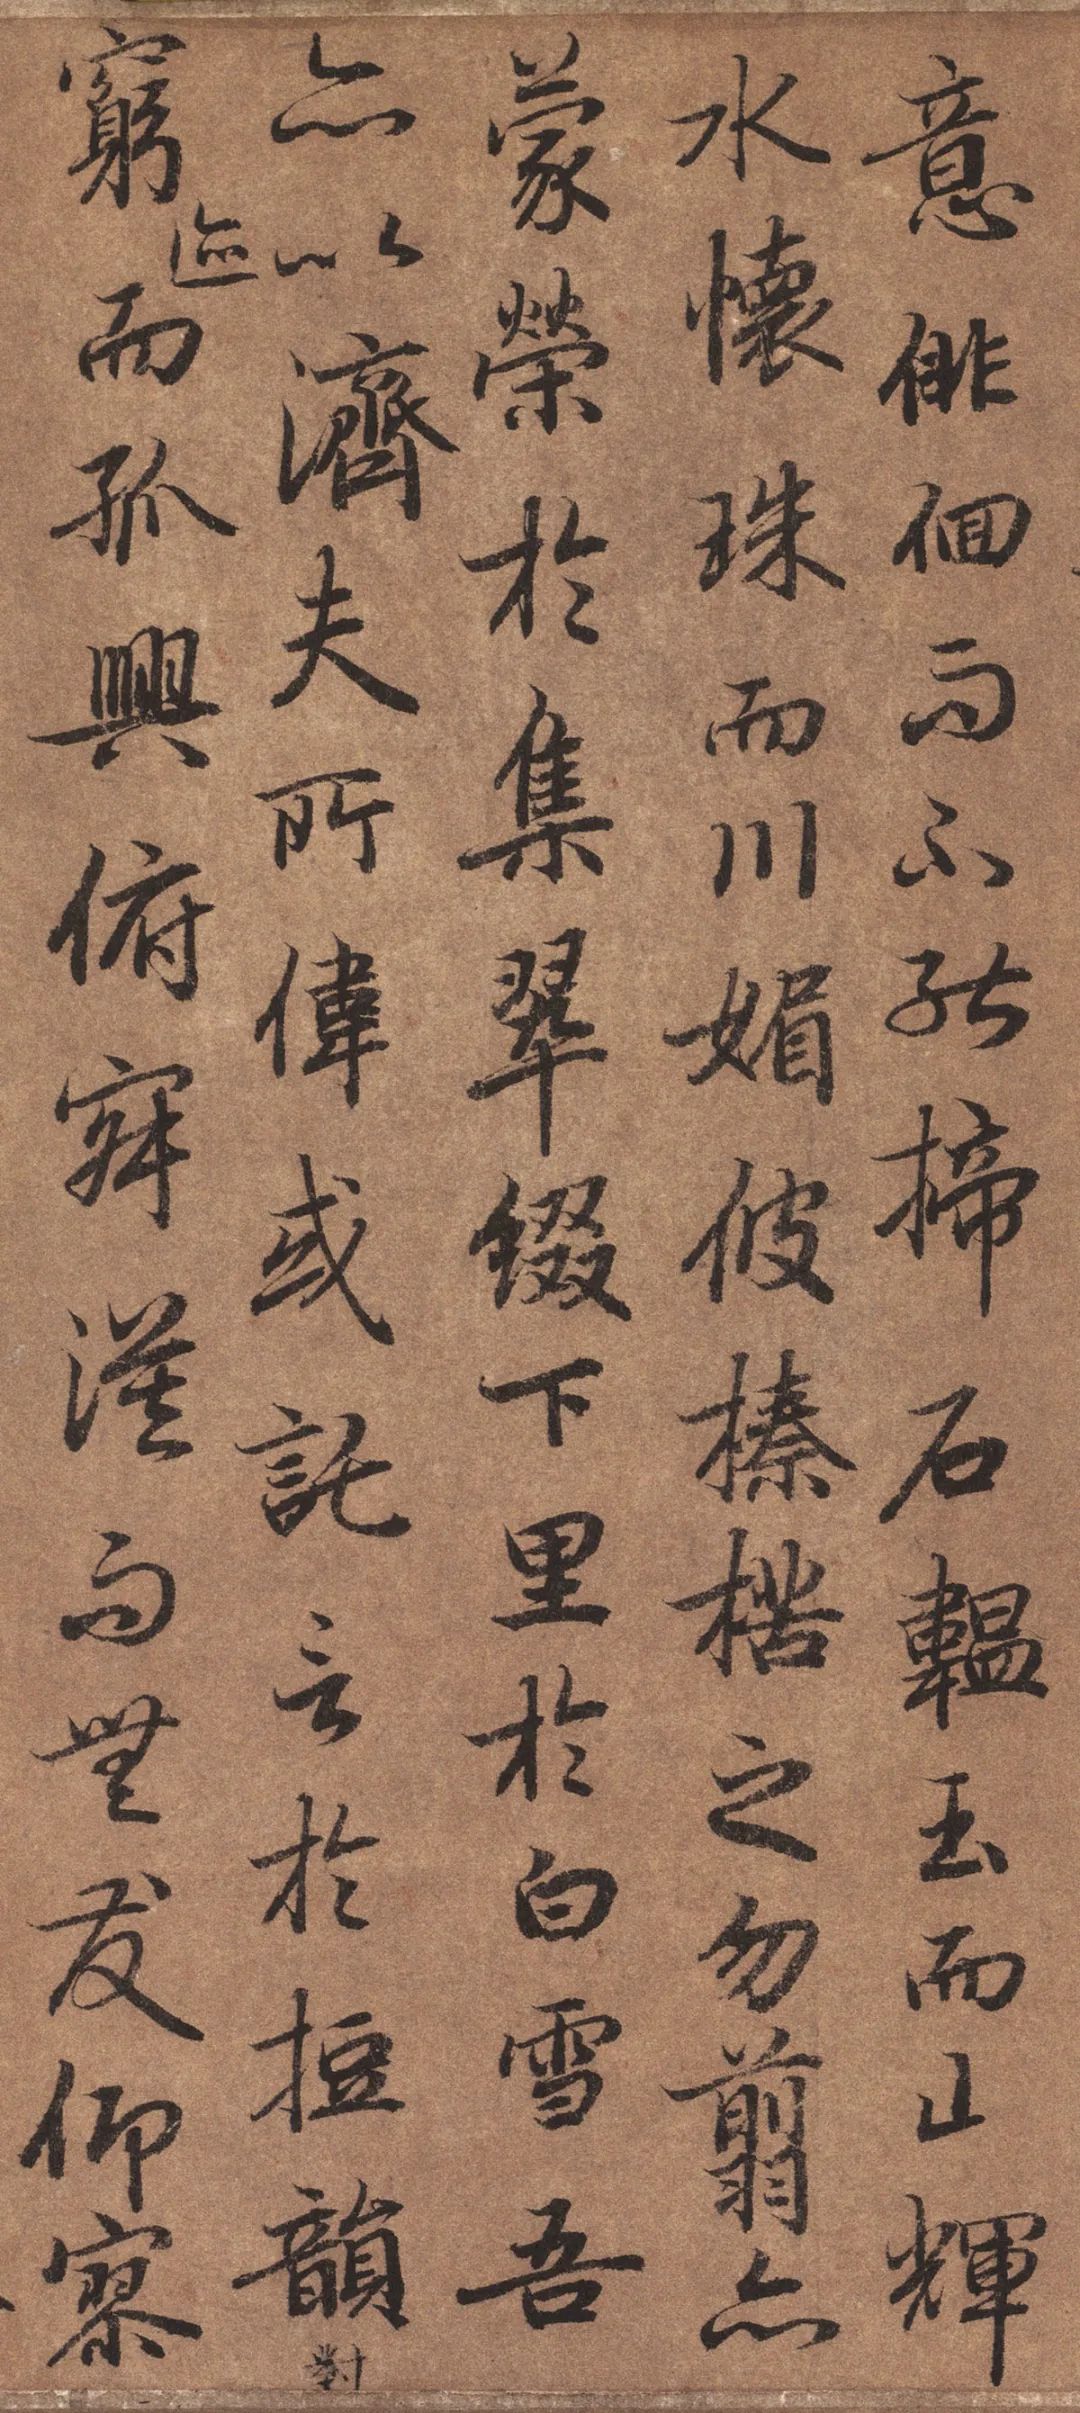 意俳佪而不能揥石韞玉而山輝
水懷珠而川媚彼榛楛之勿翦亦
蒙榮於集翠綴下里於白雪吾
亦以濟夫所偉或託言於短韻對
窮迹而孤興俯寂漠而無友仰寥